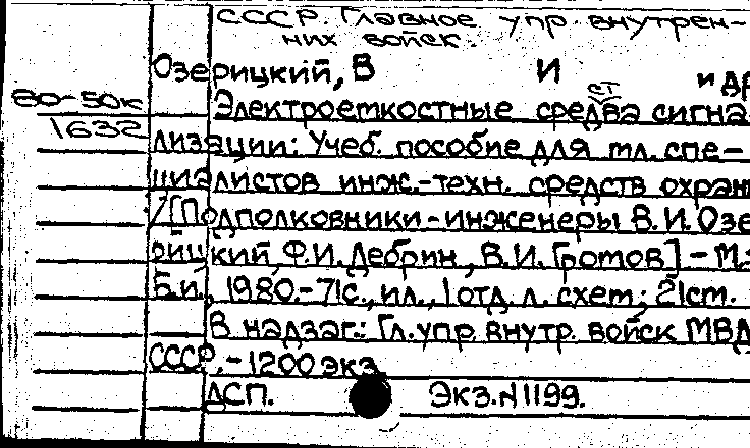 СССР. Главное упр. внутрен-
них войск.
Озерицкий, В И и др
80-50к
Электроемкостные средства сигна
1632
лизации: Учеб. пособие для мл. спе-
циалистов инж.-техн. средств охран
/[Подполковники-инженеры В.И. Озе
рицкий, Ф.И. Дебрин, В.И. Громов] - М.:
Б.и., 1980.-71с., ил., 1 отд. л. схем; 21см.
В надзаг.: Гл. упр. внутр. войск МВД
СССР. - 1200 экз.
ДСП. Экз. N1199.